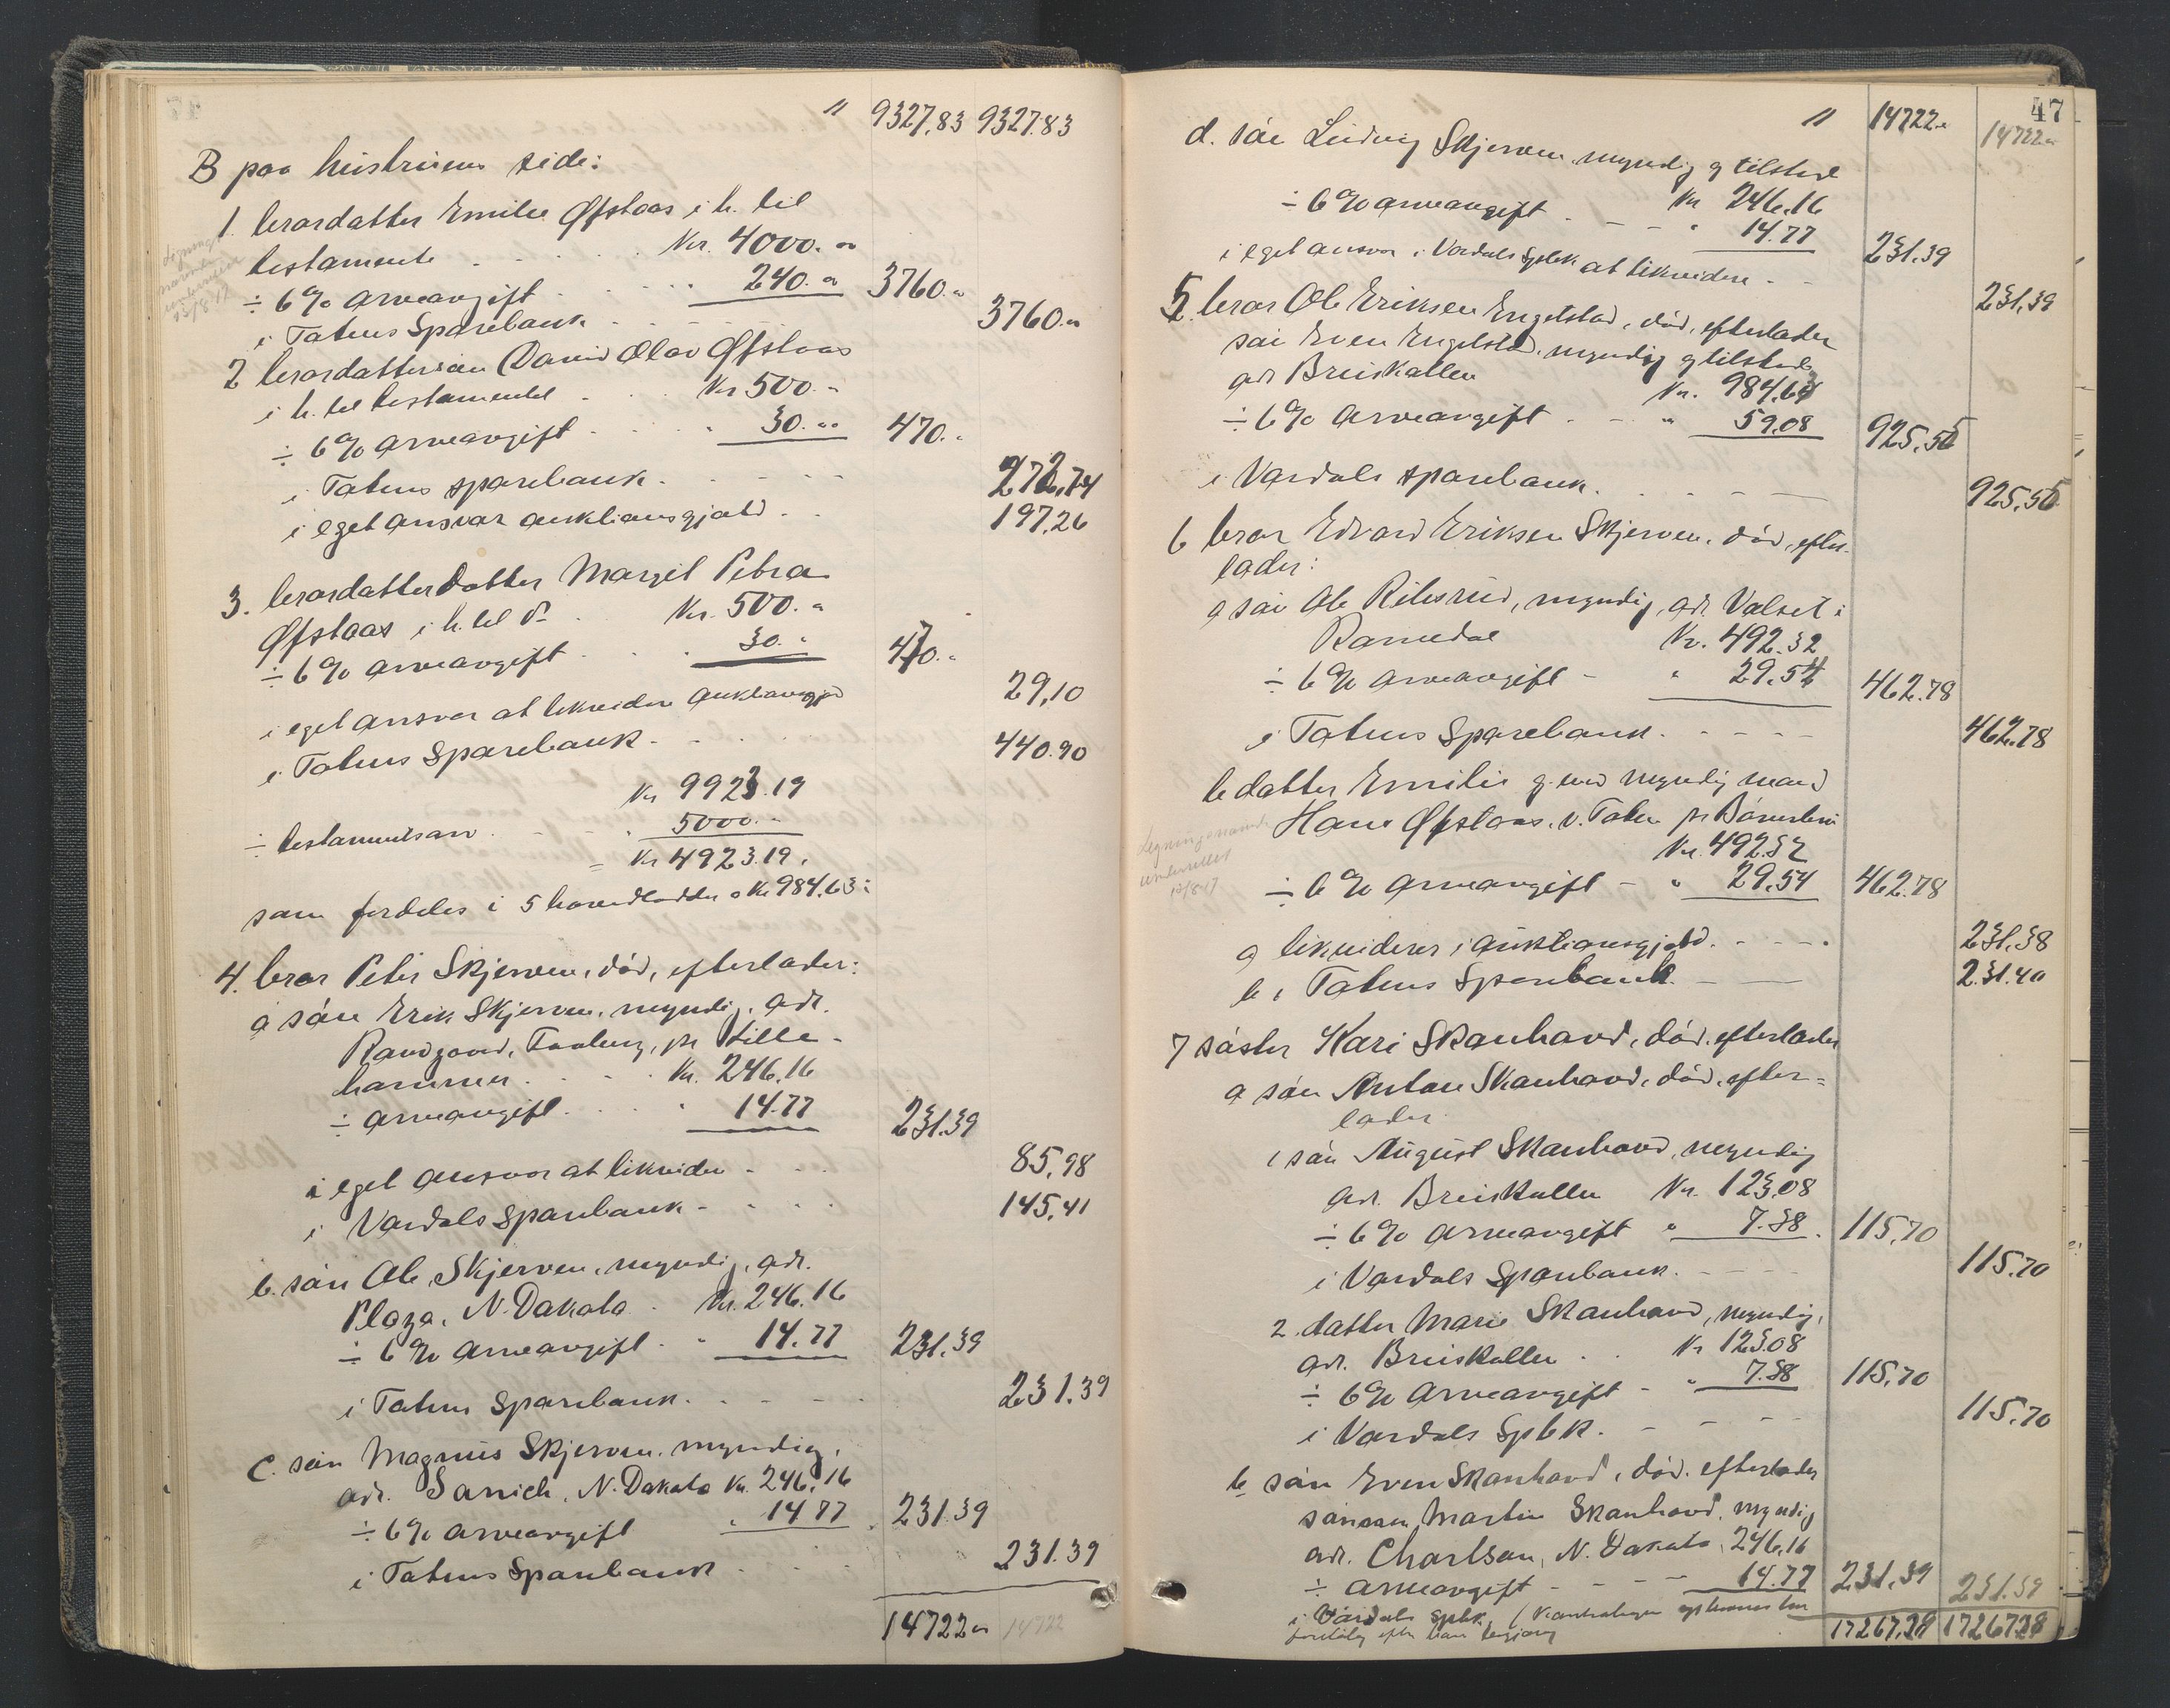 " 9327,83 9327.83
B paa hustruens side:
1. brordatter Emilie Øfstaas i h. til
testamente . . . Kr. 4000. "
÷ 6% arveavgift . . . " 240. " 3760. "
i Totens Sparebank . . . 3760. "
2 brordattersøn David Olav Øfstaas
i h. til testamentet . . Kr 500. "
÷ 6% arveavgift . . . " 30. " 470. "
i Totens sparebank . . . 272,74
i eget ansvar auktionsgjæld . . 197,26
3. brordatterdatter Margit Petra
Øfstaas i h. til do . Kr. 500. "
÷ 6% arveavgift . . . 30. " 470. "
i eget ansvar at likvidere auktionsgjæld 29,10
i Totens Sparebank . . . 440.90
Kr 9923.19
÷ testamentsarv . . . " 5000. "
= Kr 4923.19.
som fordeles i 5 hovedlodder a Kr 984,63:
4. bror Peter Skjerven, død, efterlader:
a søn Erik Skjerven, myndig, adr.
Randgaard, Faaberg, pr Lille-
hammer . . . Kr. 246,16
÷ arveavgift . . . " 14.77 231.39
i eget ansvar at likvidere . . . 85,98
i Vardals Sparebank . . . 145,41
b. søn Ole Skjerven, myndig, adr.
Plaza, N. Dakota . Kr. 246.16
÷ 6% arveavgift . " 14.77 231.39
i Totens Sparebank . . . 231.39
c. søn Magnus Skjerven, myndig,
adr. Sanich, N. Dakota Kr. 246,16
÷ 6% arveavgift " 14 77 231.39
i Totens Sparebank . . . 231.39
14722 " 14722
47
" 14722. " 14722 "
d. søn Ludvig Skjerven, myndig og tilstede
Kr 246.16
÷ 6% arveavgift . - - " 14.77 231,39
i eget ansvar i Vardals Spbk at likvidere . - 231,39
5. bror Ole Eriksen Engelstad, død, efterlader
søn Even Engelstad, myndig og tilstede
adr Breiskallen Kr. 984,63
÷ 6% arveavgift . - - " 59.08 925,55
i Vardals sparebank . . . 925,55
6 bror Edvard Eriksen Skjerven, død, efter-
lader:
a søn Ole Rilesrud, myndig, adr. Valset i
Romedal Kr. 492.32
÷ 6% arveavgift - " 29.54 462.78
i Totens Sparebank . - - - 462.78
b datter Emilie g. m. myndig mand
Hans Øfstaas, v. Toten pr Bøverbru
Kr. 492.32
÷ 6% arveavgift - " 29.54 462.78
a likviderer i auktionsgjæld . - - - 231,38
b i Totens Sparebank . - - 231.40
7 søster Kari Skanhaad, død, efterlader
a søn Anton Skanhaad, død, efter=
lader
1 søn August Skanhaad, myndig
adr. Breiskallen Kr. 123.08
÷ 6% arveavgift " 7.38. 115,70
i Vardals Sparebank . - - - 115.70
2. datter Marie Skanhaad, myndig,
adr. Breiskallen . . Kr 123.08
÷ 6% arveavgift - " 7.38 115,70
i Vardals Spbk . - - - 115.70
b søn Even Skanhaad, død, efterlader
Martin Skanhaad, myndig
adr. Charlson, N. Dakota, 246,16
÷ arveavgift - - - 14.77 231,39 231.39
i Vardals Spbk.
17267,28 17267.28